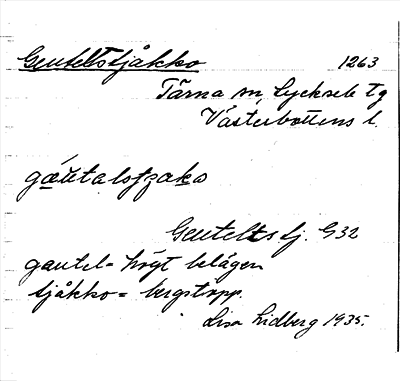 Geuteltstjåkko 1263
Tärna sn, Lycksele tg
Västerbottens l.
Geuteltstj. G32
gautel = högt belägen
tjåkko = bergstopp.
Lisa Lidberg 1935.